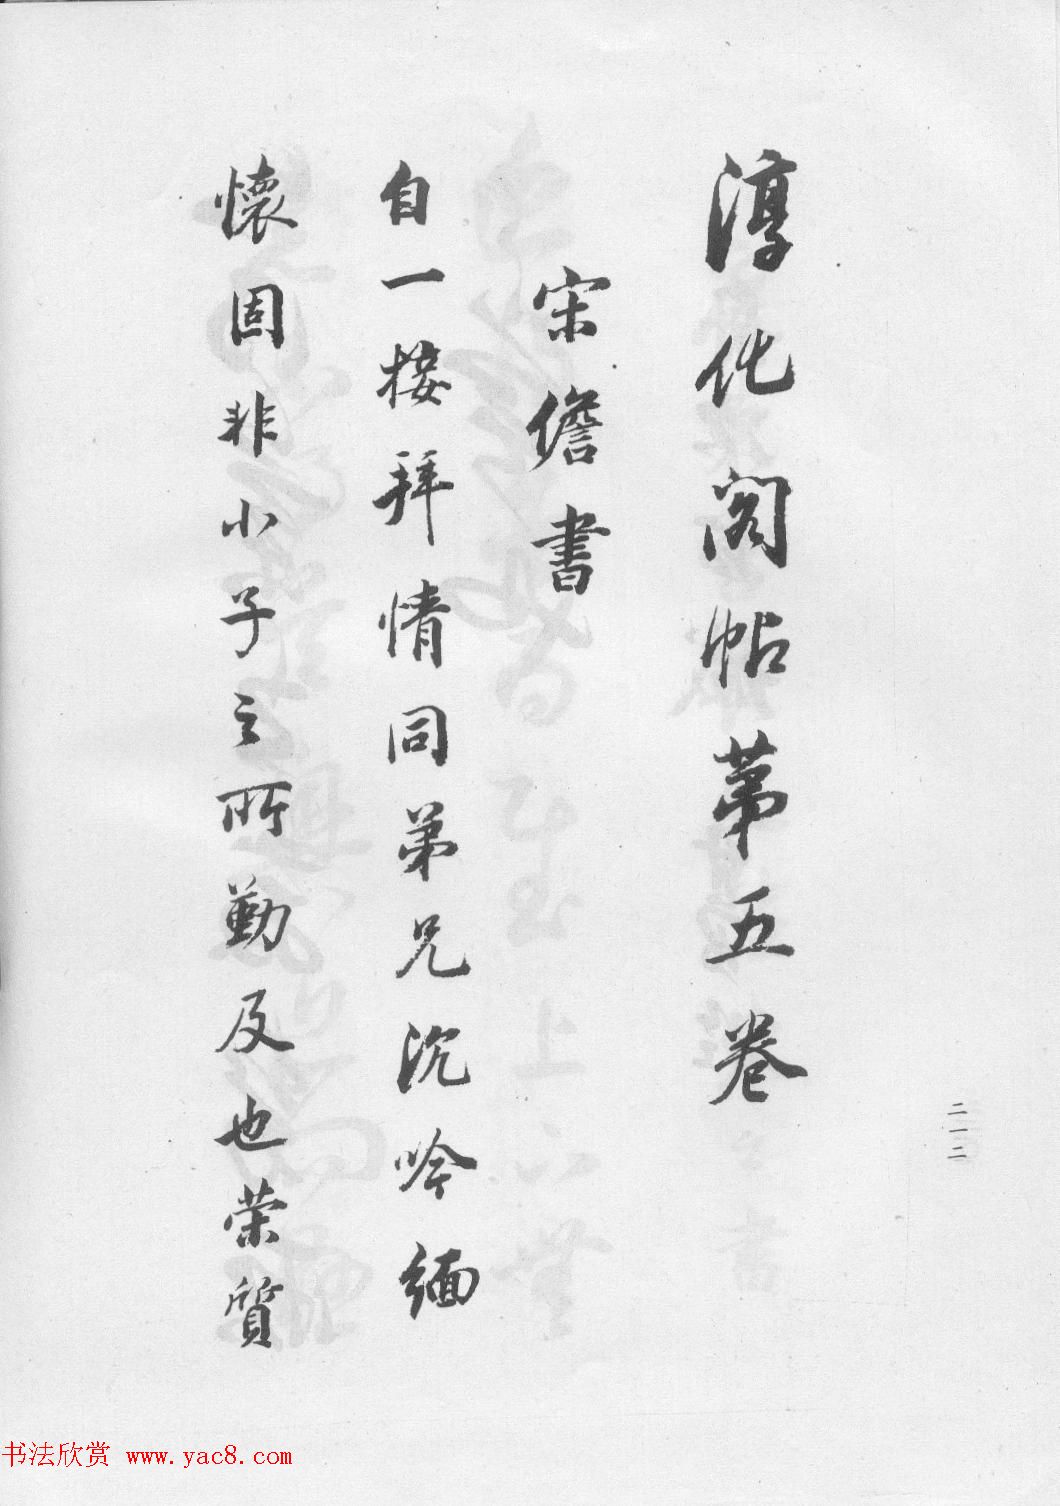 淳化阁帖第五卷
宋儋書
自一接拜情同弟兄沉吟緬
懷固非小子之所勤及也荣質
二一二
书法欣赏 www.yac8.com